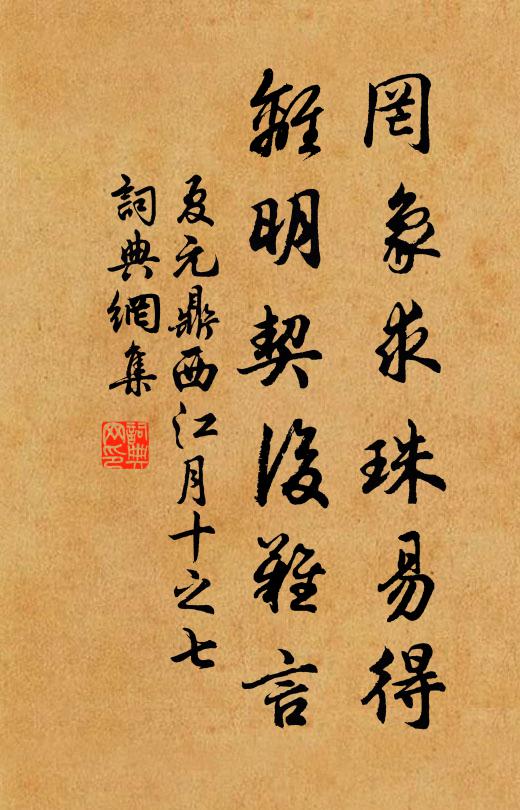 罔象求珠易得
離明契後難言
夏元鼎西江月十之七
詞典網集
詞典網印